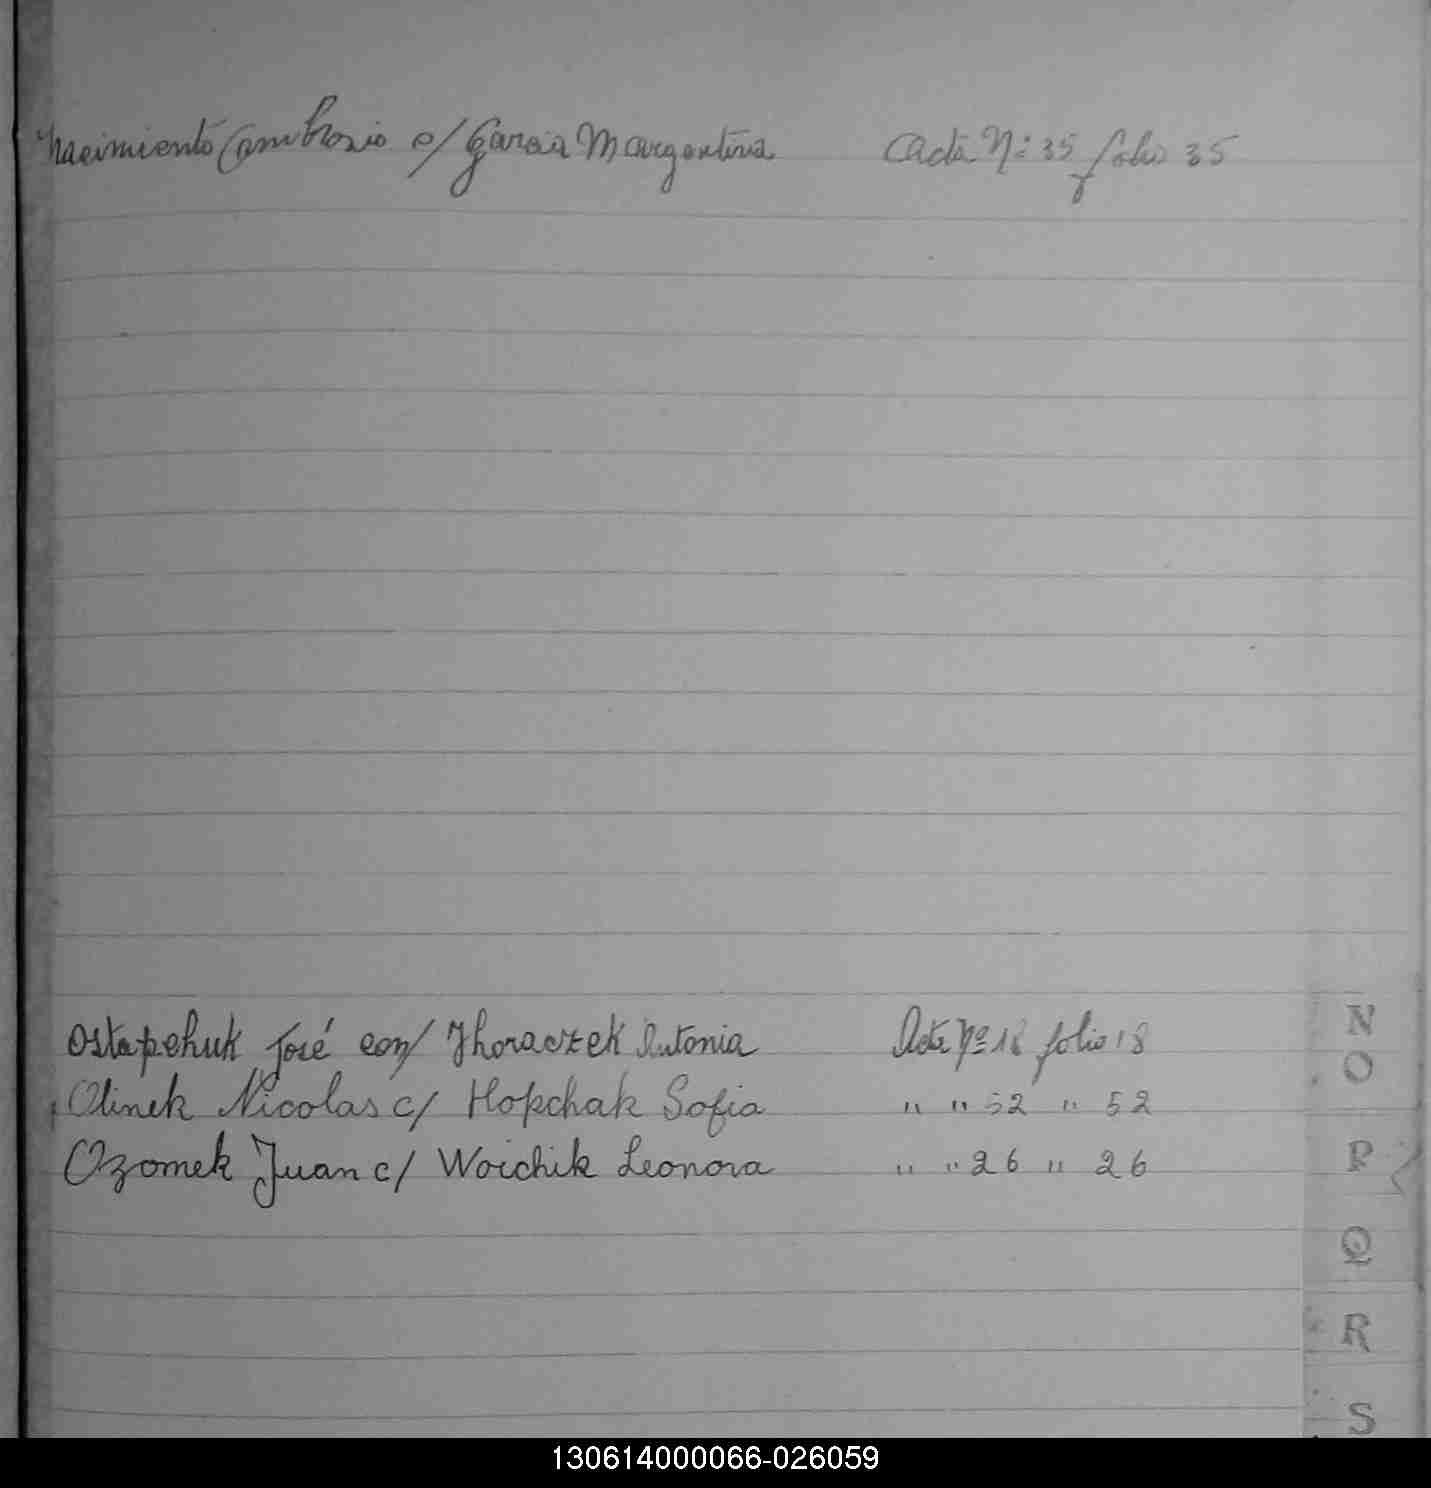 Nacimiento Ambrosio c/ Garcia Margentina Acta Nº 35 folio 35
Ostapchuk José con/ Jhoraczek Antonia Acta Nº 18 folio 18
Olinek Nicolas c/ Hopchak Sofia " " 52 " 52
Ozomek Juan c/ Woichik Leonora " " 26 " 26
N
O
P
Q
R
S
130614000066-026059